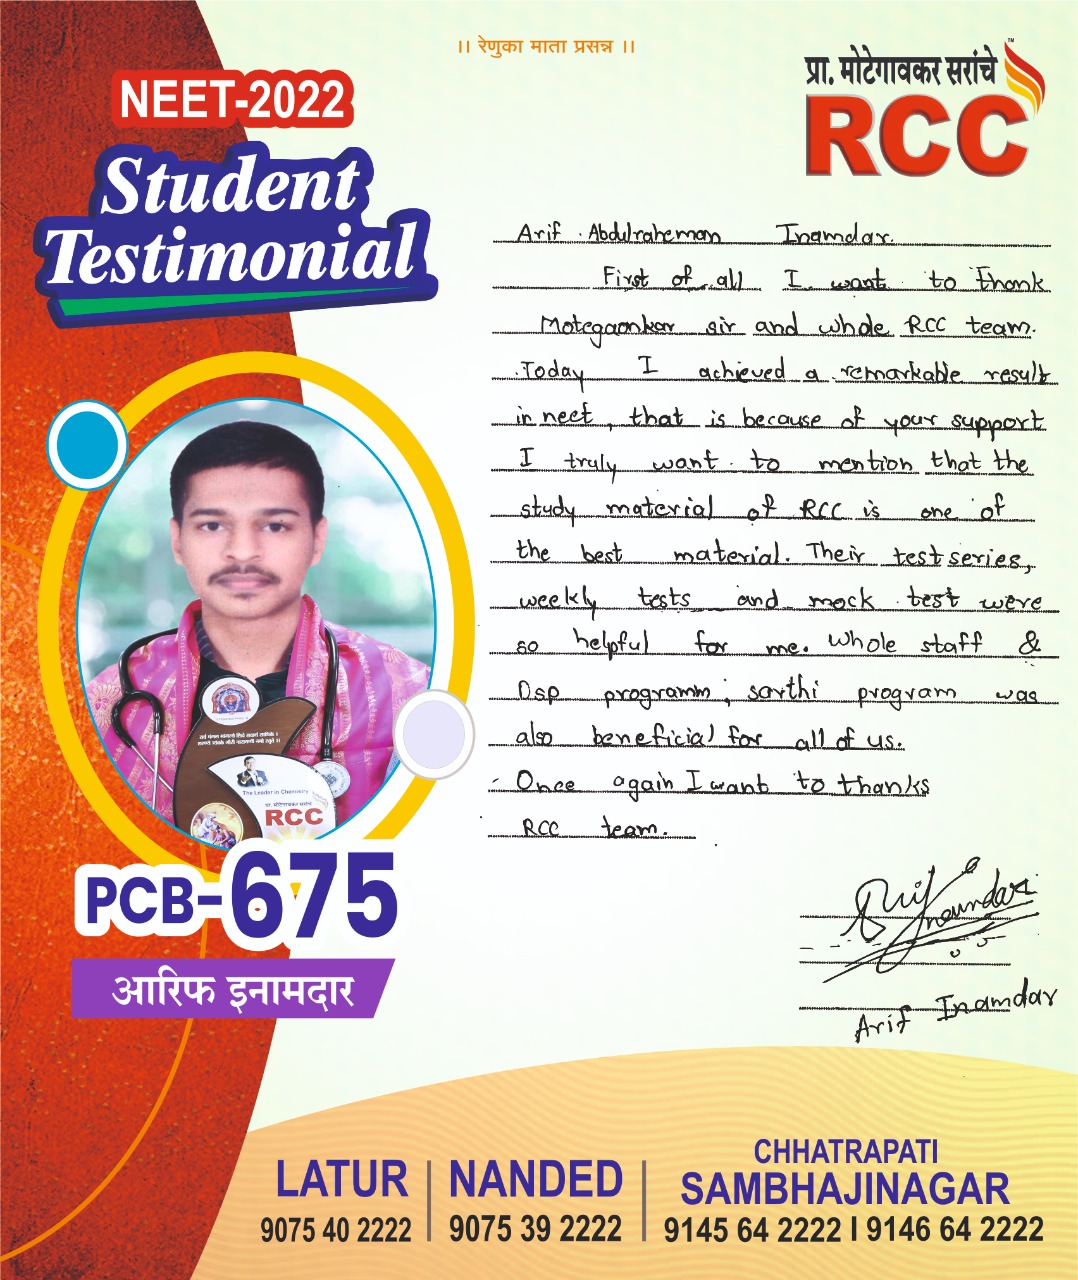 ।। रेणुका माता प्रसन्न ।।
NEET-2022
Student
Testimonial
प्रा. मोटेगावकर सरांचे
RCC
TM
Arif Abdulraheman Inamdar.
First of all I want to thank
Motegaonkar sir and whole RCC team.
Today I achieved a remarkable result
in neet, that is because of your support
I truly want to mention that the
study material of RCC is one of
the best material. Their test series,
weekly tests and mock test were
so helpful for me. whole staff &
Dsp programm, sarthi program was
also beneficial for all of us.
Once again I want to thanks
RCC team.
Arif Inamdar
Arif Inamdar
The Leader in Chemistry
प्रा. मोटेगावकर सरांचे
RCC
PCB-675
आरिफ इनामदार
LATUR
9075 40 2222
NANDED
9075 39 2222
CHHATRAPATI
SAMBHAJINAGAR
9145 64 2222 I 9146 64 2222